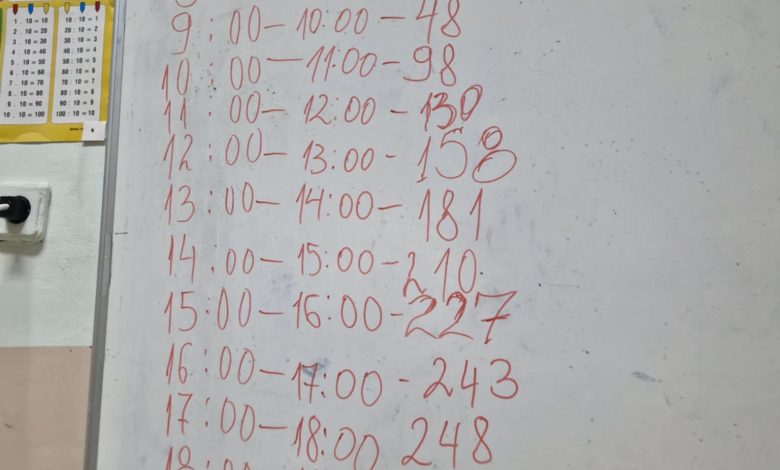 1 . 10 = 10
2 . 10 = 20
3 . 10 = 30
4 . 10 = 40
5 . 10 = 50
6 . 10 = 60
7 . 10 = 70
8 . 10 = 80
9 . 10 = 90
10 . 10 = 100
10 : 10 = 1
20 : 10 = 2
30 : 10 = 3
40 : 10 = 4
50 : 10 = 5
60 : 10 = 6
70 : 10 = 7
80 : 10 = 8
90 : 10 = 9
100 : 10 = 10
9:00-10:00-48
10:00-11:00-98
11:00-12:00-130
12:00-13:00-158
13:00-14:00-181
14:00-15:00-210.
15.00-16:00-227
16:00-17:00-243
17:00-18:00 248
18:00